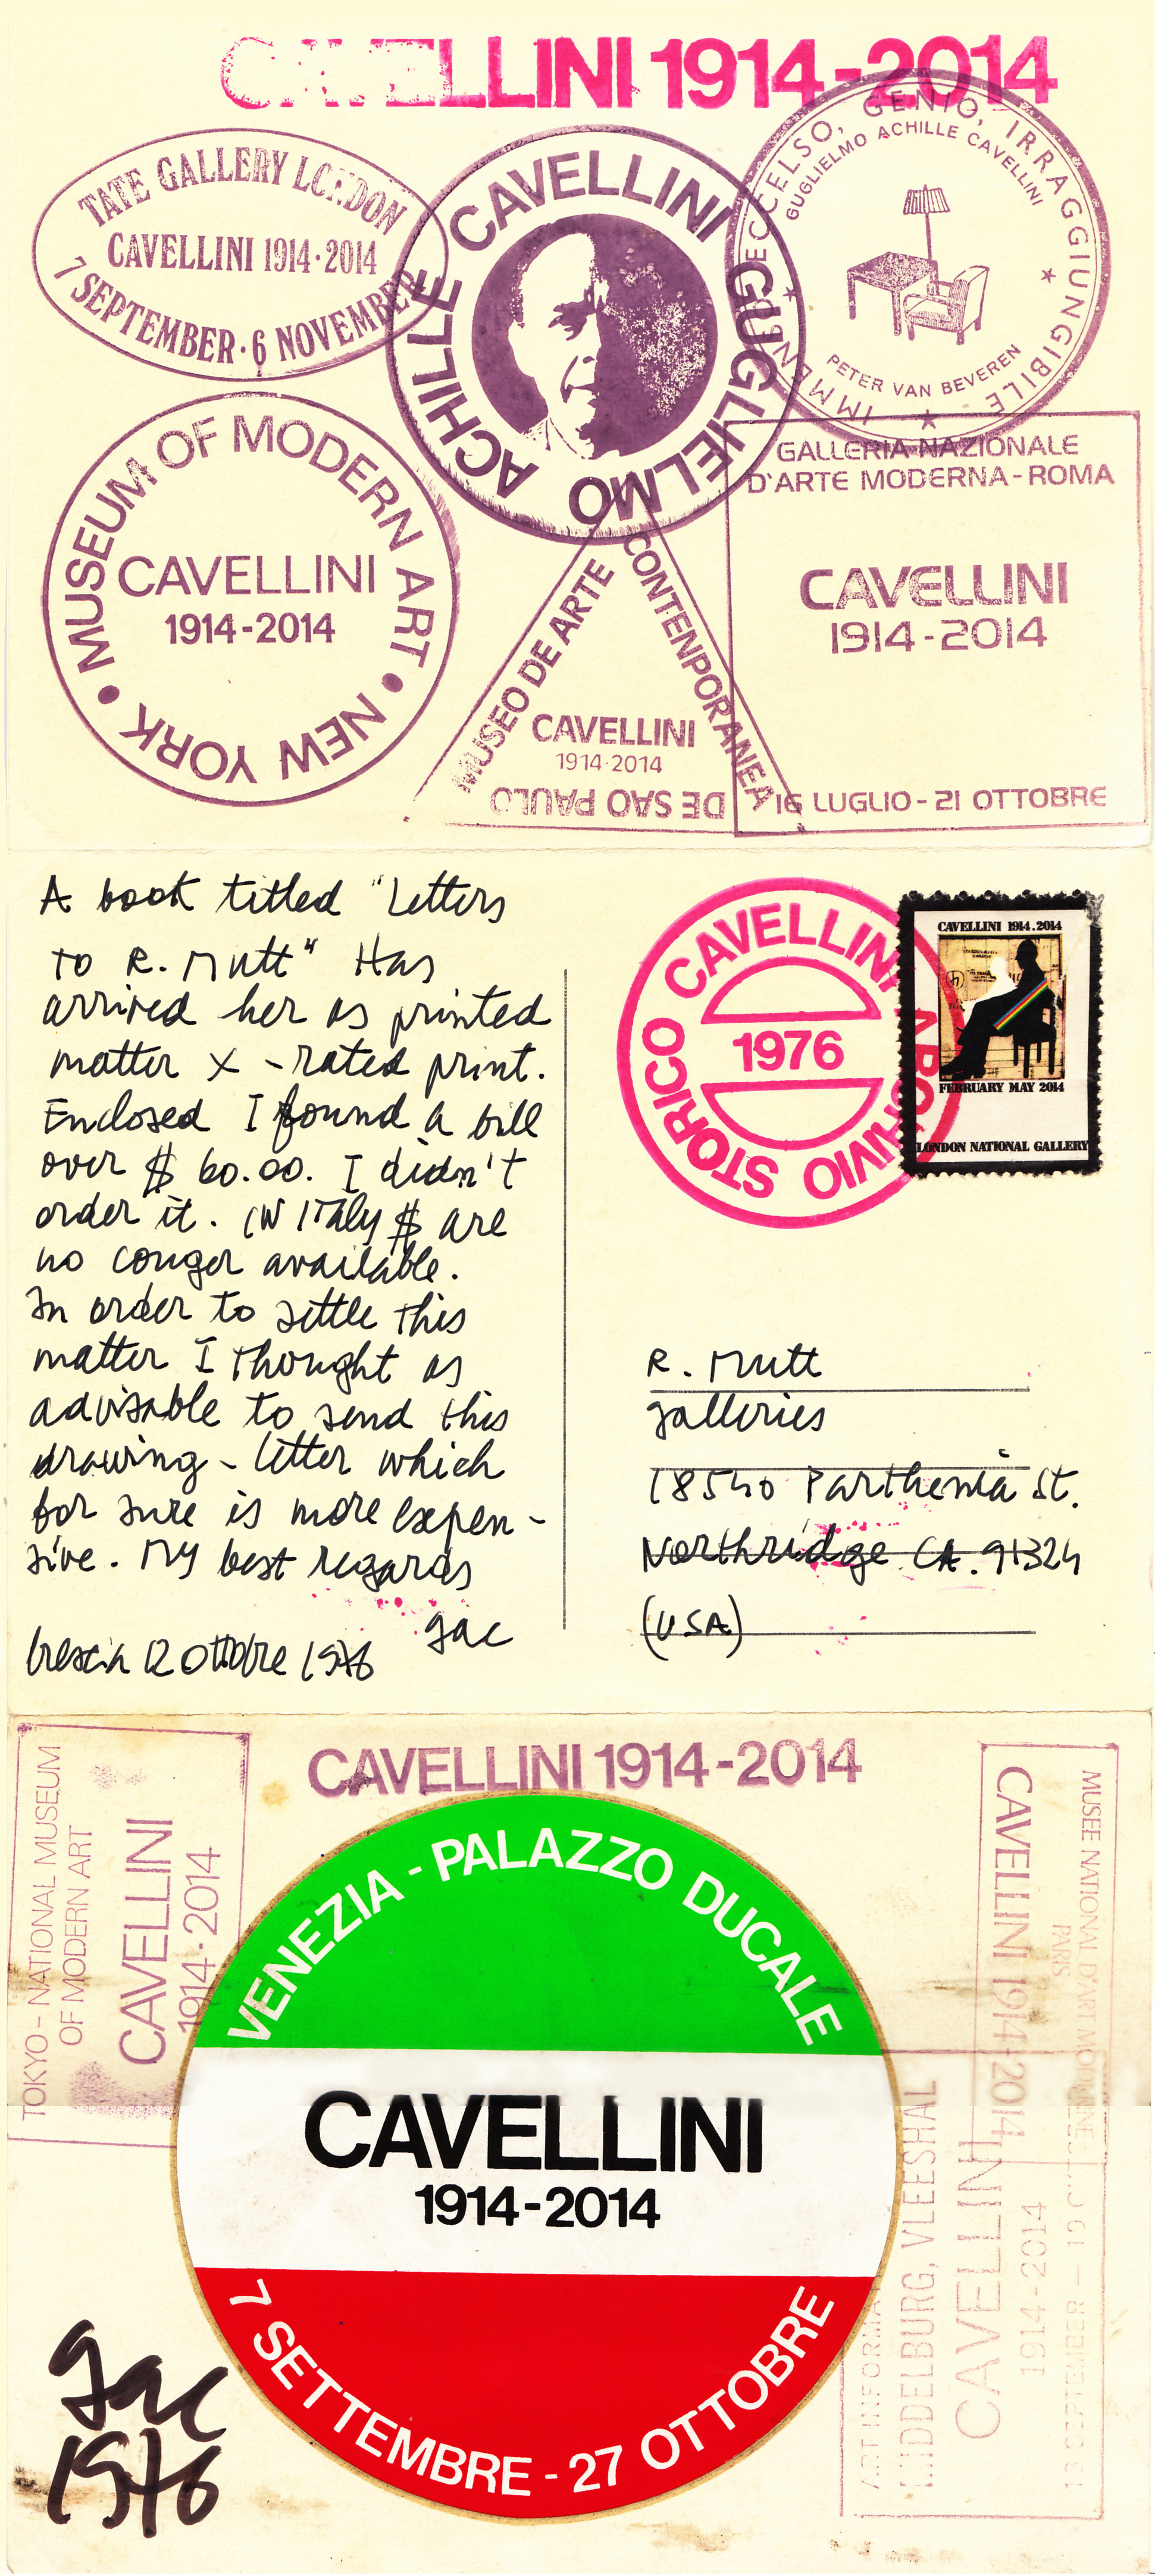 CAVELLINI 1914-2014
TATE GALLERY LONDON
CAVELLINI 1914·2014
7 SEPTEMBER · 6 NOVEMBER
GUGLIELMO ACHILLE CAVELLINI
IMMENSO, ECCELSO, GENIO, IRRAGGIUNGIBILE
GUGLIELMO ACHILLE CAVELLINI
PETER VAN BEVEREN
MUSEUM OF MODERN ART • NEW YORK •
CAVELLINI
1914-2014
MUSEO DE ARTE
CONTENPORANEA
DE SAO PAULO
CAVELLINI
1914·2014
GALLERIA NAZIONALE
D'ARTE MODERNA - ROMA
CAVELLINI
1914-2014
16 LUGLIO - 21 OTTOBRE
A book titled "Letters
to R. Mutt" Has
arrived her as printed
matter X - rated print.
Enclosed I found a bill
over $ 60.00. I didn't
order it. IN ITaly $ are
no longer available.
In order to settle this
matter I thought as
advisable to send this
drawing - letter which
for sure is more expen-
sive. My best regards
gac
brescia 12 ottobre 1976
CAVELLINI ARCHIVIO STORICO
1976
CAVELLINI 1914.2014
FEBRUARY MAY 2014
LONDON NATIONAL GALLERY
R. Mutt
galleries
18540 Parthenia St.
Northridge CA. 91324
(USA)
CAVELLINI 1914-2014
TOKYO - NATIONAL MUSEUM
OF MODERN ART
CAVELLINI
1914-2014
VENEZIA - PALAZZO DUCALE
CAVELLINI
1914-2014
7 SETTEMBRE - 27 OTTOBRE
MUSEE NATIONAL D'ART MODERNE
PARIS
CAVELLINI 1914-2014
ART INFORMA
MIDDELBURG, VLEESHAL
CAVELLINI
1914-2014
13 SEPTEMBER -
gac
1976